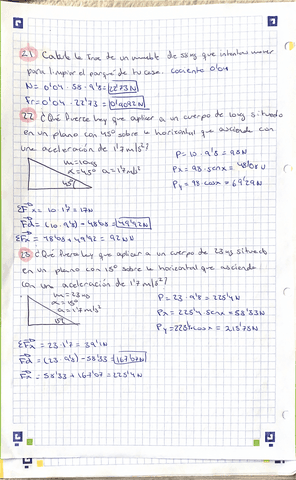 21 Calcula la Froz de un mueble de 58kg que intentas mover
para limpiar el parqué de tu casa. cociente 0'04
N = 0'04 · 58 · 9'8 = 22'73N
Fr = 0'04 · 22'73 = 0'9092N
22 ¿Qué fuerza hay que aplicar a un cuerpo de 10kg situado
en un plano con 45º sobre la horizontal que asciende con
una aceleración de 1'7m/s²?
m = 10kg
α = 45º a = 1'7m/s²
45º
P = 10 · 9'8 = 98N
Px = 98 · senα =
Py = 98 · cosα = 69'29N
ΣFx = 10 · 1'7 = 17N
23 ¿Qué fuerza hay que aplicar a un cuerpo de 23kg situado
en un plano con 15º sobre la horizontal que asciende
con una aceleración de 1'7m/s²?
m = 23kg
α = 15º
a = 1'7m/s²
15º
P = 23 · 9'8 = 225'4N
Px = 225'4 · senα = 58'33N
ΣFx = 23 · 1'7 = 39'1N
Fa = (23 · 9'8) - 58'33 = 167'07N
Fx = 58'33 + 167'07 = 225'4N